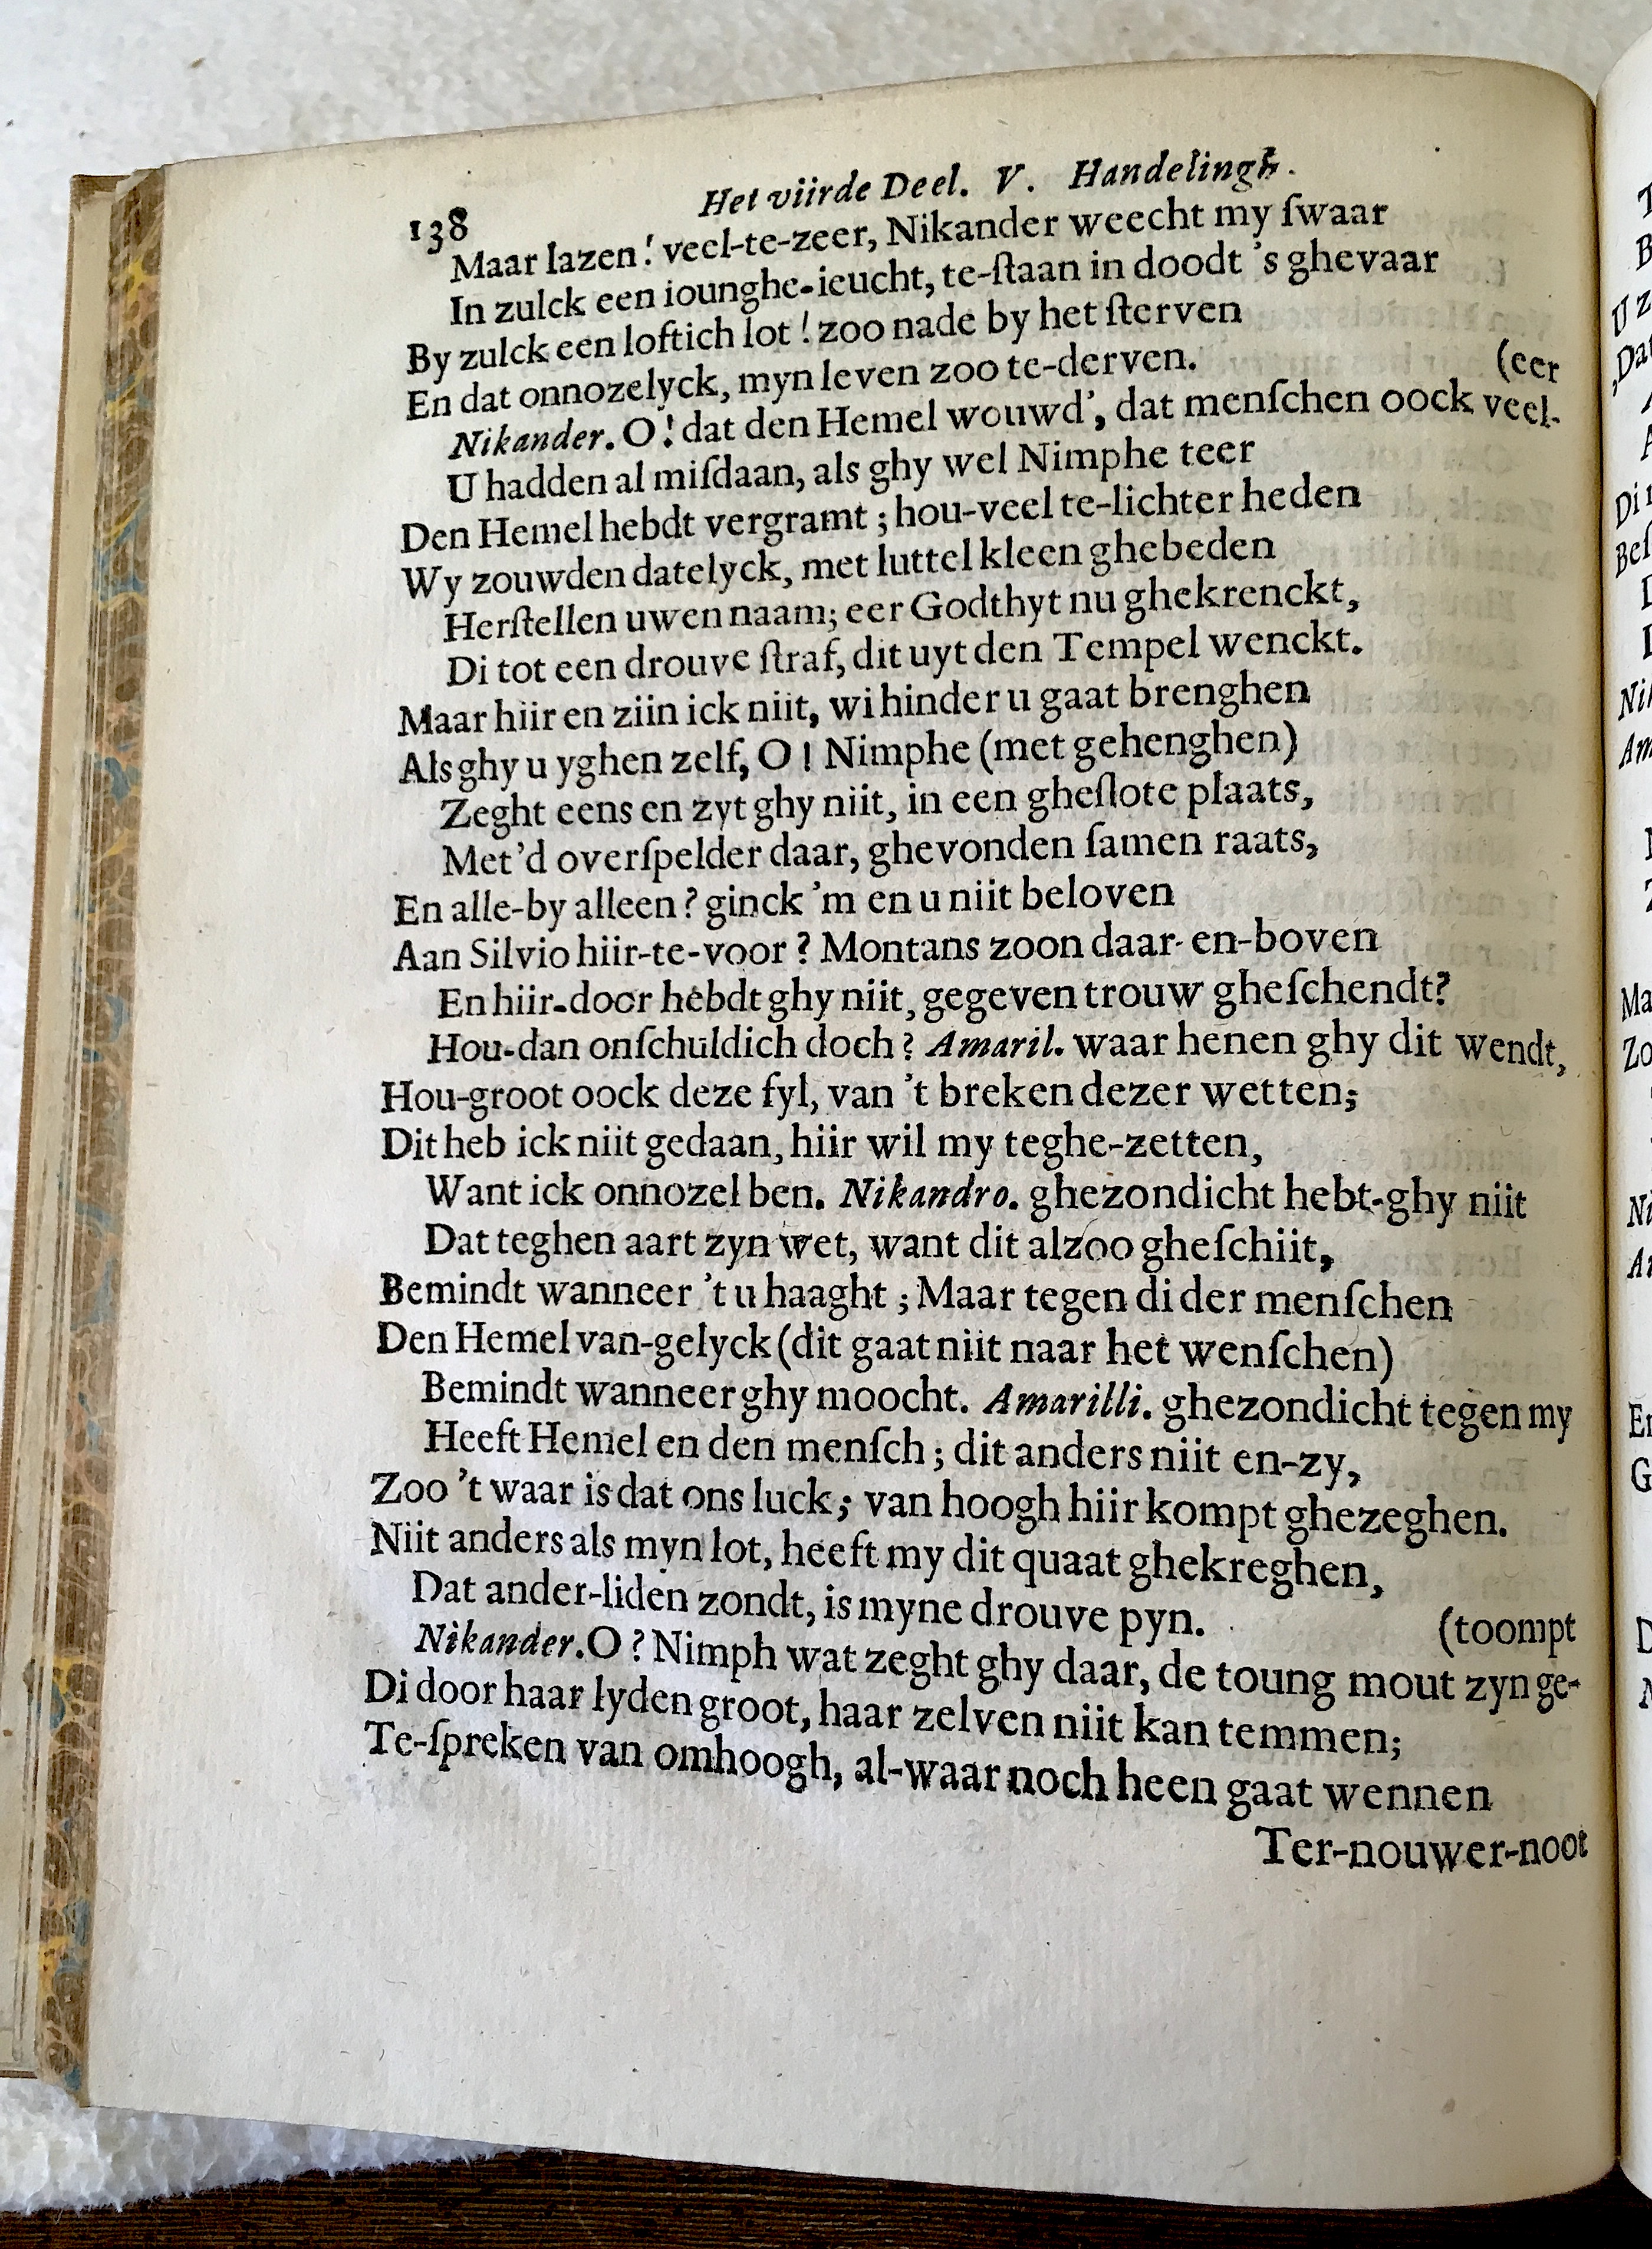 138 Het viirde Deel. V. Handelingh.
Maar lazen! veel-te-zeer, Nikander weecht my ſwaar
In zulck een iounghe-ieucht, te-ſtaan in doodt 's ghevaar
By zulck een loftich lot! zoo nade by het ſterven
En dat onnozelyck, myn leven zoo te-derven. (eer
Nikander. O! dat den Hemel wouwd', dat menſchen oock veel-
U hadden al miſdaan, als ghy wel Nimphe teer
Den Hemel hebdt vergramt; hou-veel te-lichter heden
Wy zouwden datelyck, met luttel kleen ghebeden
Herſtellen uwen naam; eer Godthyt nu ghekrenckt,
Di tot een drouve ſtraf, dit uyt den Tempel wenckt.
Maar hiir en ziin ick niit, wi hinder u gaat brenghen
Als ghy u yghen zelf, O! Nimphe (met gehenghen)
Zeght eens en zyt ghy niit, in een gheſlote plaats,
Met'd overſpelder daar, ghevonden ſamen raats,
En alle-by alleen? ginck 'm en u niit beloven
Aan Silvio hiir-te-voor? Montans zoon daar-en-boven
En hiir-door hebdt ghy niit, gegeven trouw gheſchendt?
Hou-dan onſchuldich doch? Amaril. waar henen ghy dit wendt,
Hou-groot oock deze fyl, van 't breken dezer wetten;
Dit heb ick niit gedaan, hiir wil my teghe-zetten,
Want ick onnozel ben. Nikandro. ghezondicht hebt-ghy niit
Dat teghen aart zyn wet, want dit alzoo gheſchiit,
Bemindt wanneer 't u haaght; Maar tegen di der menſchen
Den Hemel van-gelyck (dit gaat niit naar het wenſchen)
Bemindt wanneer ghy moocht. Amarilli. ghezondicht tegen my
Heeft Hemel en den menſch; dit anders niit en-zy,
Zoo 't waar is dat ons luck; van hoogh hiir kompt ghezeghen.
Niit anders als myn lot, heeft my dit quaat ghekreghen,
Dat ander-liden zondt, is myne drouve pyn. (toompt
Nikander. O? Nimph wat zeght ghy daar, de toung mout zyn ge-
Di door haar lyden groot, haar zelven niit kan temmen;
Te-ſpreken van omhoogh, al-waar noch heen gaat wennen
Ter-nouwer-noot